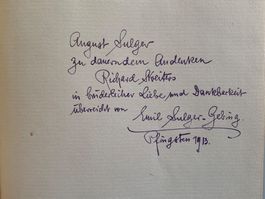 August Sulger
zu dauerndem Andenken
Richard Streiters
in brüderlicher Liebe und Dankbarkeit
überreicht von
Emil Sulger-Gebing.
Pfingsten 1913.